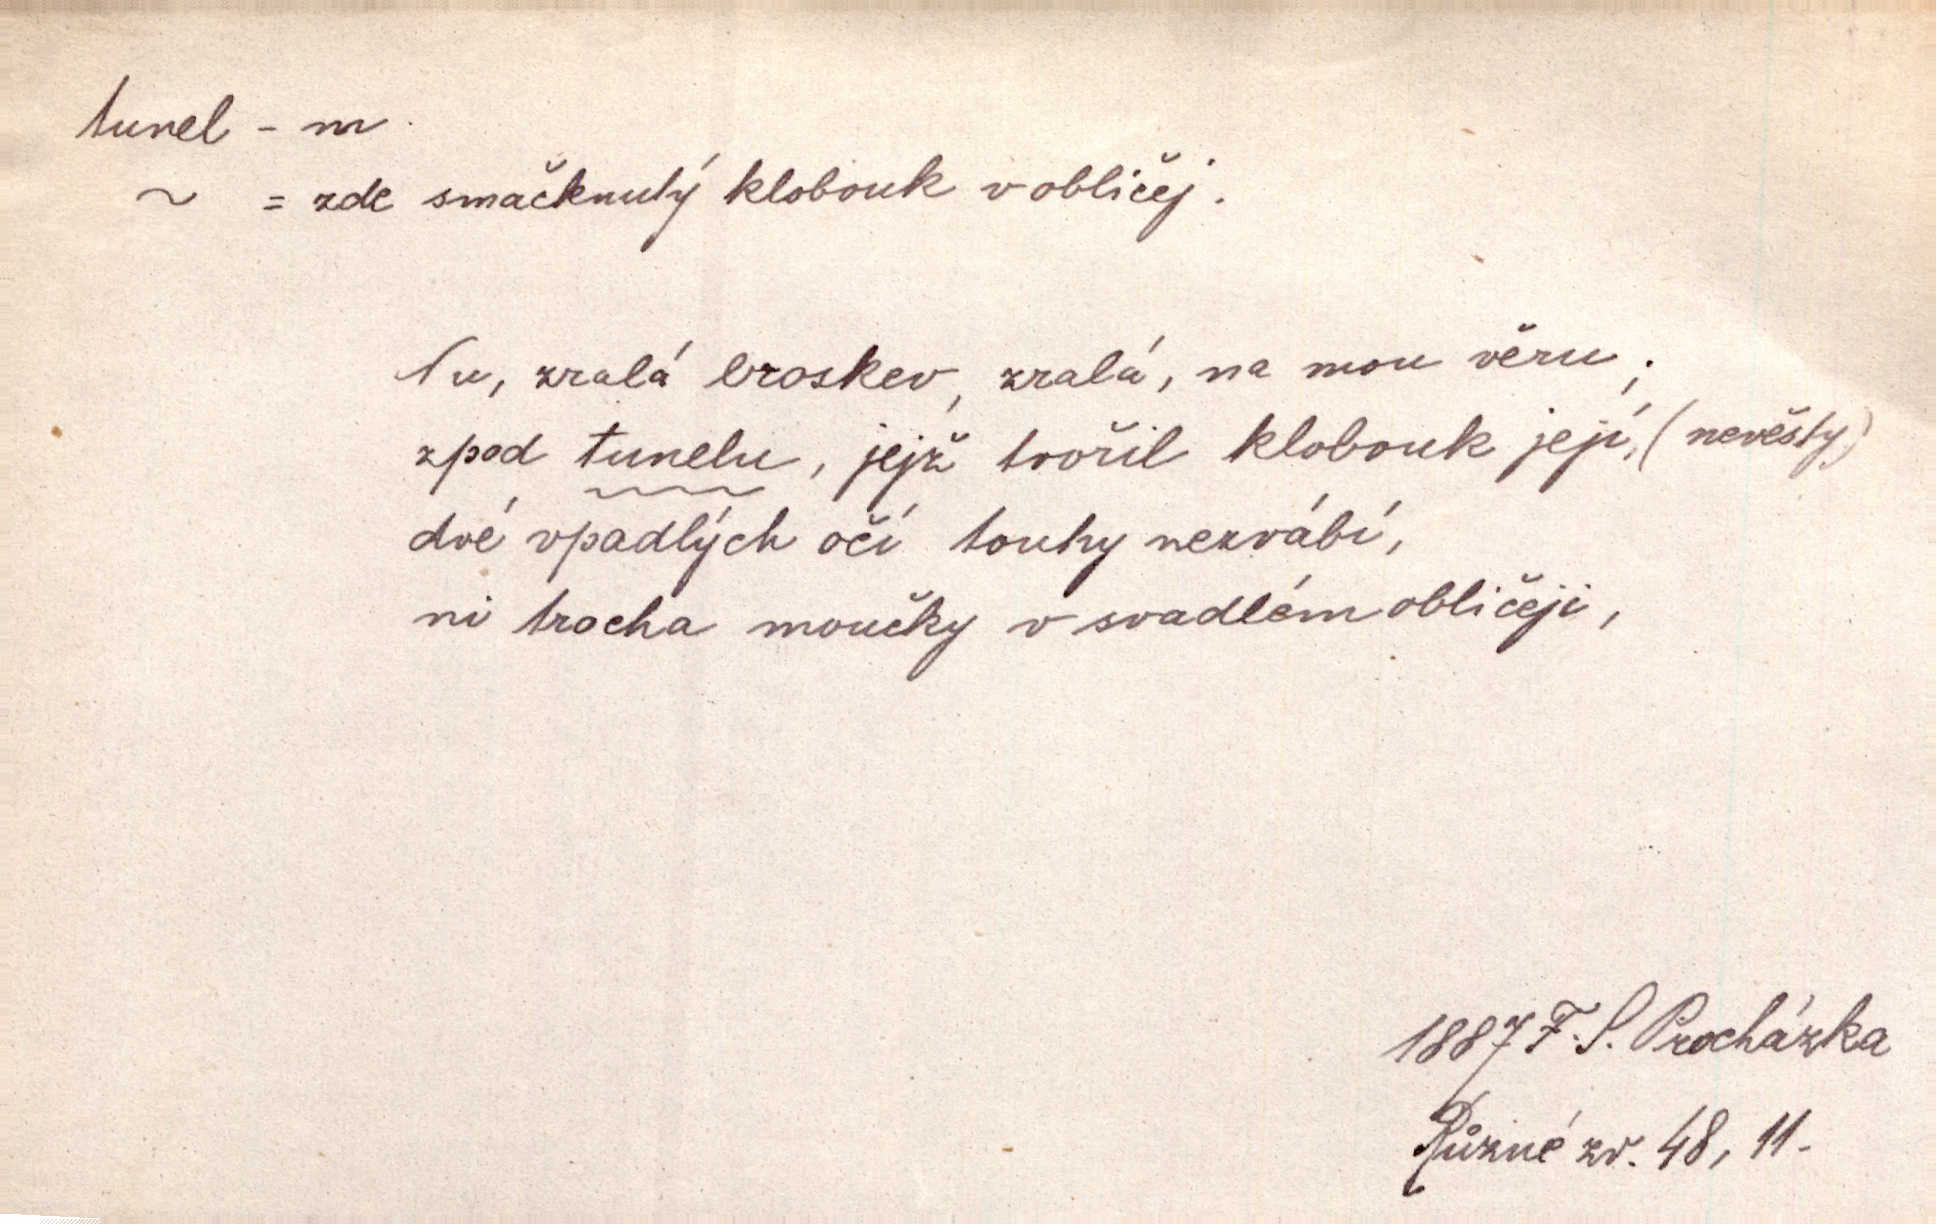 tunel - m
~ = zde smačknutý klobouk v obličej.
Nu, zralá broskev, zralá, na mou věru;
zpod tunelu, jejž tvořil klobouk její, (nevěsty)
dvé vpadlých očí touhy nezvábí,
ni trocha moučky v svadlém obličeji,
1887 F. S. Procházka
Různé zv. 48, 11.